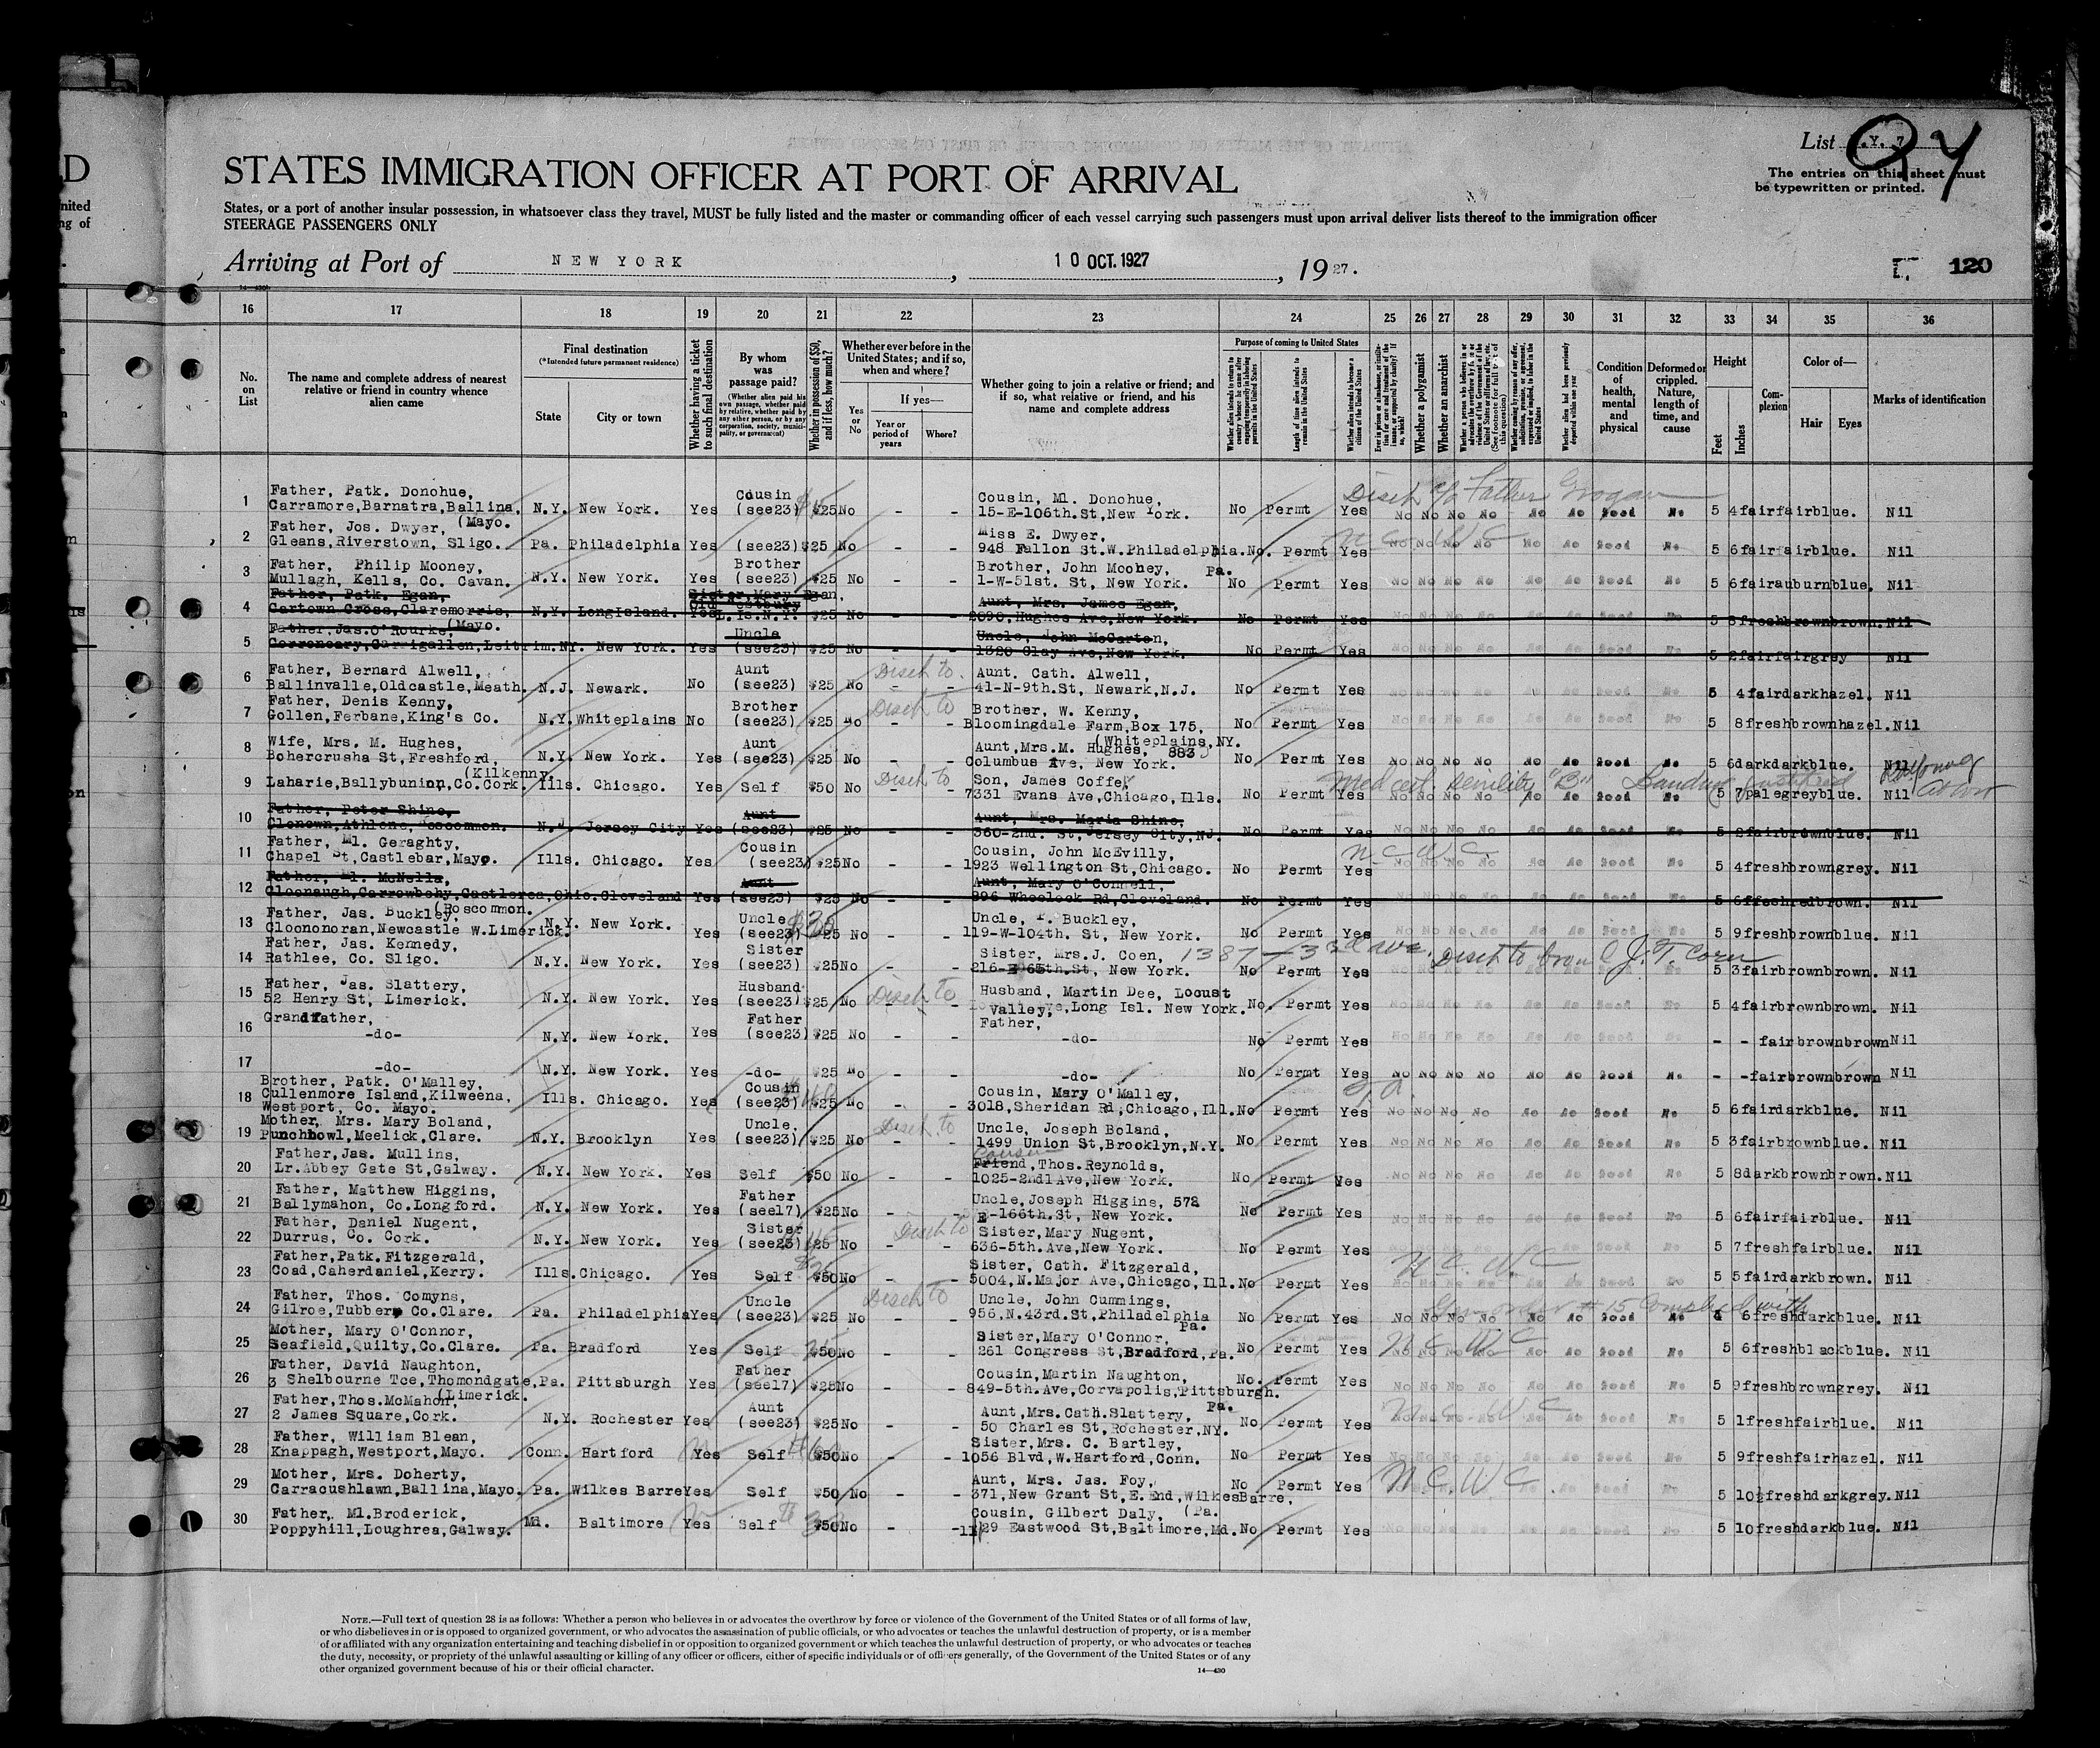 List N.Y. 7
94
STATES IMMIGRATION OFFICER AT PORT OF ARRIVAL
The entries on this sheet must
be typewritten or printed.
States, or a port of another insular possession, in whatsoever class they travel, MUST be fully listed and the master or commanding officer of each vessel carrying such passengers must upon arrival deliver lists thereof to the immigration officer
STEERAGE PASSENGERS ONLY
Arriving at Port of NEW YORK, 10 OCT. 1927, 1927.
120
16 17 18 19 20 21 22 23 24 25 26 27 28 29 30 31 32 33 34 35 36
No. on List
The name and complete address of nearest relative or friend in country whence alien came
Final destination
(*Intended future permanent residence)
State
City or town
Whether having a ticket to such final destination
By whom was passage paid?
(Whether alien paid his own passage, whether paid by relative, whether paid by any other person, or by any corporation, society, municipality, or government)
Whether in possession of $50, and if less, how much?
Whether ever before in the United States; and if so, when and where?
Yes or No
If yes—
Year or period of years
Where?
Whether going to join a relative or friend; and if so, what relative or friend, and his name and complete address
Purpose of coming to United States
Length of time alien intends to remain in the United States
Whether alien intends to become a citizen of the United States
Whether a polygamist
Whether an anarchist
Condition of health, mental and physical
Deformed or crippled. Nature, length of time, and cause
Height
Feet
Inches
Complexion
Color of—
Hair
Eyes
Marks of identification
Disch c/o Father Grogan
1 Father, Patk. Donohue, Carramore,Barnatra,Ballina, (Mayo. N.Y. New York. Yes Cousin (see23) $25 No - - Cousin, Ml. Donohue, 15-E-106th.St,New York. No Permt Yes No No No No No No Good No 5 4 fair fair blue. Nil
2 Father, Jos. Dwyer, Gleans,Riverstown, Sligo. Pa. Philadelphia Yes (see23) $25 No - - Miss E. Dwyer, 948 Fallon St.W.Philadelphia. Pa. No. Permt Yes No No No No No No Good No 5 6 fair fair blue. Nil
3 Father, Philip Mooney, Mullagh, Kells, Co. Cavan. N.Y. New York. Yes Brother (see23) $25 No - - Brother, John Mooney, 1-W-51st. St, New York. No Permt Yes No No No No No No Good No 5 6 fair auburn blue. Nil
4 Father, Patk. Egan, Cartown Cross,Claremorris, (Mayo. N.Y. LongIsland. Yes Sister,Mary Egan, Old Westbury L.Is.N.Y. $25 No - Aunt, Mrs. James Egan, 2690,Hughes Ave,New York. No Permt Yes 5 8 fresh brown brown. Nil
5 Father,Jas.O'Rourke, Corroneary,Carrigallen,Leitrim. NY. New York. Yes Uncle (see23) $25 No - - Uncle, John McCarten, 1320 Clay Ave,New York. No Permt Yes 5 2 fair fair grey Nil
6 Father, Bernard Alwell, Ballinvalle,Oldcastle,Meath. N.J. Newark. No Aunt (see23) $25 No Disch to - - Aunt. Cath. Alwell, 41-N-9th.St, Newark,N.J. No Permt Yes 5 4 fair dark hazel. Nil
7 Father, Denis Kenny, Gollen,Ferbane,King's Co. N.Y. Whiteplains No Brother (see23) $25 No Disch to - - Brother, W. Kenny, Bloomingdale Farm,Box 175, (Whiteplains,NY. No Permt Yes 5 8 fresh brown hazel. Nil
8 Wife, Mrs. M. Hughes, Bohercrusha St,Freshford, (Kilkenny. N.Y. New York. Yes Aunt (see23) $25 No - - Aunt,Mrs.M. Hughes, 883 Columbus Ave, New York. No Permt Yes No No No No No No Good No 5 6 dark dark blue. Nil
9 Laharie,Ballybunion,Co.Cork. Ills. Chicago. Yes Self $50 No Disch to - - Son, James Coffey 7331 Evans Ave,Chicago,Ills. No Permt Yes Med cert. Senility "B" Landing No No No No No No Good No 5 7 pale grey blue. Nil
10 Father, Peter Shine, Clonown,Athlone,Roscommon. N.J. Jersey City Yes Aunt (see23) $25 No - - Aunt, Mrs. Maria Shine, 360-2nd. St,Jersey City,NJ. No Permt Yes 5 8 fair brown blue. Nil
11 Father, Ml. Geraghty, Chapel St,Castlebar,Mayo. Ills. Chicago. Yes Cousin (see23) $25 No - - Cousin, John McEvilly, 1923 Wellington St,Chicago. No Permt Yes N C W C 5 4 fresh brown grey. Nil
12 Father, Ml. McNella, Cloonaugh,Carrowbehy,Castlerea, (Roscommon. Ohio. Cleveland Yes Aunt (see23) $25 No - - Aunt, Mary O'Connell, 896 Wheelock Rd,Cleveland. No Permt Yes 5 6 fresh red brown. Nil
13 Father, Jas. Buckley, Cloononoran,Newcastle W.Limerick. N.Y. New York. Yes Uncle (see23) $25 No - - Uncle, P. Buckley, 119-W-104th. St, New York. No Permt Yes 5 9 fresh brown blue. Nil
14 Father, Jas. Kennedy, Rathlee, Co. Sligo. N.Y. New York. Yes Sister (see23) $25 No - - Sister, Mrs.J. Coen, 1387-3rd ave. 216-E 65th.St, New York. No Permt Yes Disch to J. T. Coen 5 3 fair brown brown. Nil
15 Father, Jas. Slattery, 52 Henry St, Limerick. N.Y. New York. Yes Husband (see23) $25 No Disch to - - Husband, Martin Dee, Locust Valley, Long Isl. New York. No. Permt Yes 5 4 fair brown brown. Nil
16 Grandfather, -do- N.Y. New York. Yes Father (see23) $25 No - - Father, -do- No Permt Yes - - fair brown brown Nil
17 -do- N.Y. New York. Yes -do- $25 No - - -do- No Permt Yes No No No No No No Good No - - fair brown brown Nil
18 Brother, Patk. O'Malley, Cullenmore Island,Kilweena, Westport, Co. Mayo. Ills. Chicago. Yes Cousin (see23) $25 No - - Cousin, Mary O'Malley, 3018,Sheridan Rd,Chicago,Ill. No Permt Yes No No No No No No Good No 5 6 fair dark blue. Nil
19 Mother, Mrs. Mary Boland, Punchbowl,Meelick,Clare. N.Y. Brooklyn Yes Uncle, (see23) $25 No Disch to - - Uncle, Joseph Boland, 1499 Union St,Brooklyn,N.Y. No Permt Yes 5 3 fair brown blue. Nil
20 Father,Jas. Mullins, Lr.Abbey Gate St,Galway. N.Y. New York. Yes Self $50 No - - Cousin Friend,Thos.Reynolds, 1025-2nd Ave,New York. No Permt Yes 5 8 dark brown brown. Nil
21 Father, Matthew Higgins, Ballymahon, Co.Longford. N.Y. New York. Yes Father (see17) $25 No - - Uncle,Joseph Higgins, 572 E-166th.St, New York. No Permt Yes 5 6 fair fair blue. Nil
22 Father, Daniel Nugent, Durrus, Co. Cork. N.Y. New York. Yes Sister (see23) $25 No Disch to - - Sister, Mary Nugent, 636-5th.Ave,New York. No Permt Yes 5 7 fresh fair blue. Nil
23 Father,Patk.Fitzgerald, Coad,Caherdaniel,Kerry. Ills. Chicago. Yes Self $50 No - - Sister, Cath. Fitzgerald, 5004,N.Major Ave,Chicago,Ill. No Permt Yes N.C.W.C 5 5 fair dark brown. Nil
24 Father, Thos. Comyns, Gilroe,Tubber, Co.Clare. Pa. Philadelphia Yes Uncle (see23) $25 No Disch to - - Uncle, John Cummings, 956,N.43rd.St,Philadelphia Pa. No Permt Yes Gen order #15 Complied with No No No No No No Good No 6 fresh dark blue. Nil
25 Mother, Mary O'Connor, Seafield,Quilty,Co.Clare. Pa. Bradford Yes Self $50 No - Sister,Mary O'Connor, 261 Congress St,Bradford,Pa. No Permt Yes N C W C 5 6 fresh black blue. Nil
26 Father, David Naughton, 3 Shelbourne Tce,Thomondgate, (Limerick. Pa. Pittsburgh Yes Father (see17) $25 No - - Cousin,Martin Naughton, 849-5th.Ave,Corvapolis,Pittsburgh. Pa. No. Permt Yes 5 9 fresh brown grey. Nil
27 Father,Thos.McMahon, 2 James Square,Cork. N.Y. Rochester Yes Aunt (see23) $25 No - - Aunt,Mrs.Cath.Slattery, 50 Charles St,Rochester,NY. No Permt Yes N C W C 5 1 fresh fair blue. Nil
28 Father, William Blean, Knappagh,Westport,Mayo. Conn. Hartford Yes Self $50 No - - Sister,Mrs. C. Bartley, 1056 Blvd,W.Hartford,Conn. No Permt Yes 5 9 fresh fair hazel. Nil
29 Mother, Mrs. Doherty, Carracushlawn,Ballina,Mayo. Pa. Wilkes Barre Yes Self $50 No - - Aunt, Mrs. Jas. Foy, 371,New Grant St,E.End,WilkesBarre, (Pa. No Permt Yes N.C.W.C 5 10½ fresh dark grey. Nil
30 Father, Ml.Broderick, Poppyhill,Loughrea,Galway. Md. Baltimore Yes Self $50 No - - Cousin, Gilbert Daly, 1129 Eastwood St,Baltimore,Md. No Permt Yes 5 10 fresh dark blue. Nil
NOTE.—Full text of question 28 is as follows: Whether a person who believes in or advocates the overthrow by force or violence of the Government of the United States or of all forms of law,
or who disbelieves in or is opposed to organized government, or who advocates the assassination of public officials, or who advocates or teaches the unlawful destruction of property, or is a member
of or affiliated with any organization entertaining and teaching disbelief in or opposition to organized government or which teaches the unlawful destruction of property, or who advocates or teaches
the duty, necessity, or propriety of the unlawful assaulting or killing of any officer or officers, either of specific individuals or of officers generally, of the Government of the United States or of any
other organized government because of his or their official character.
14—430